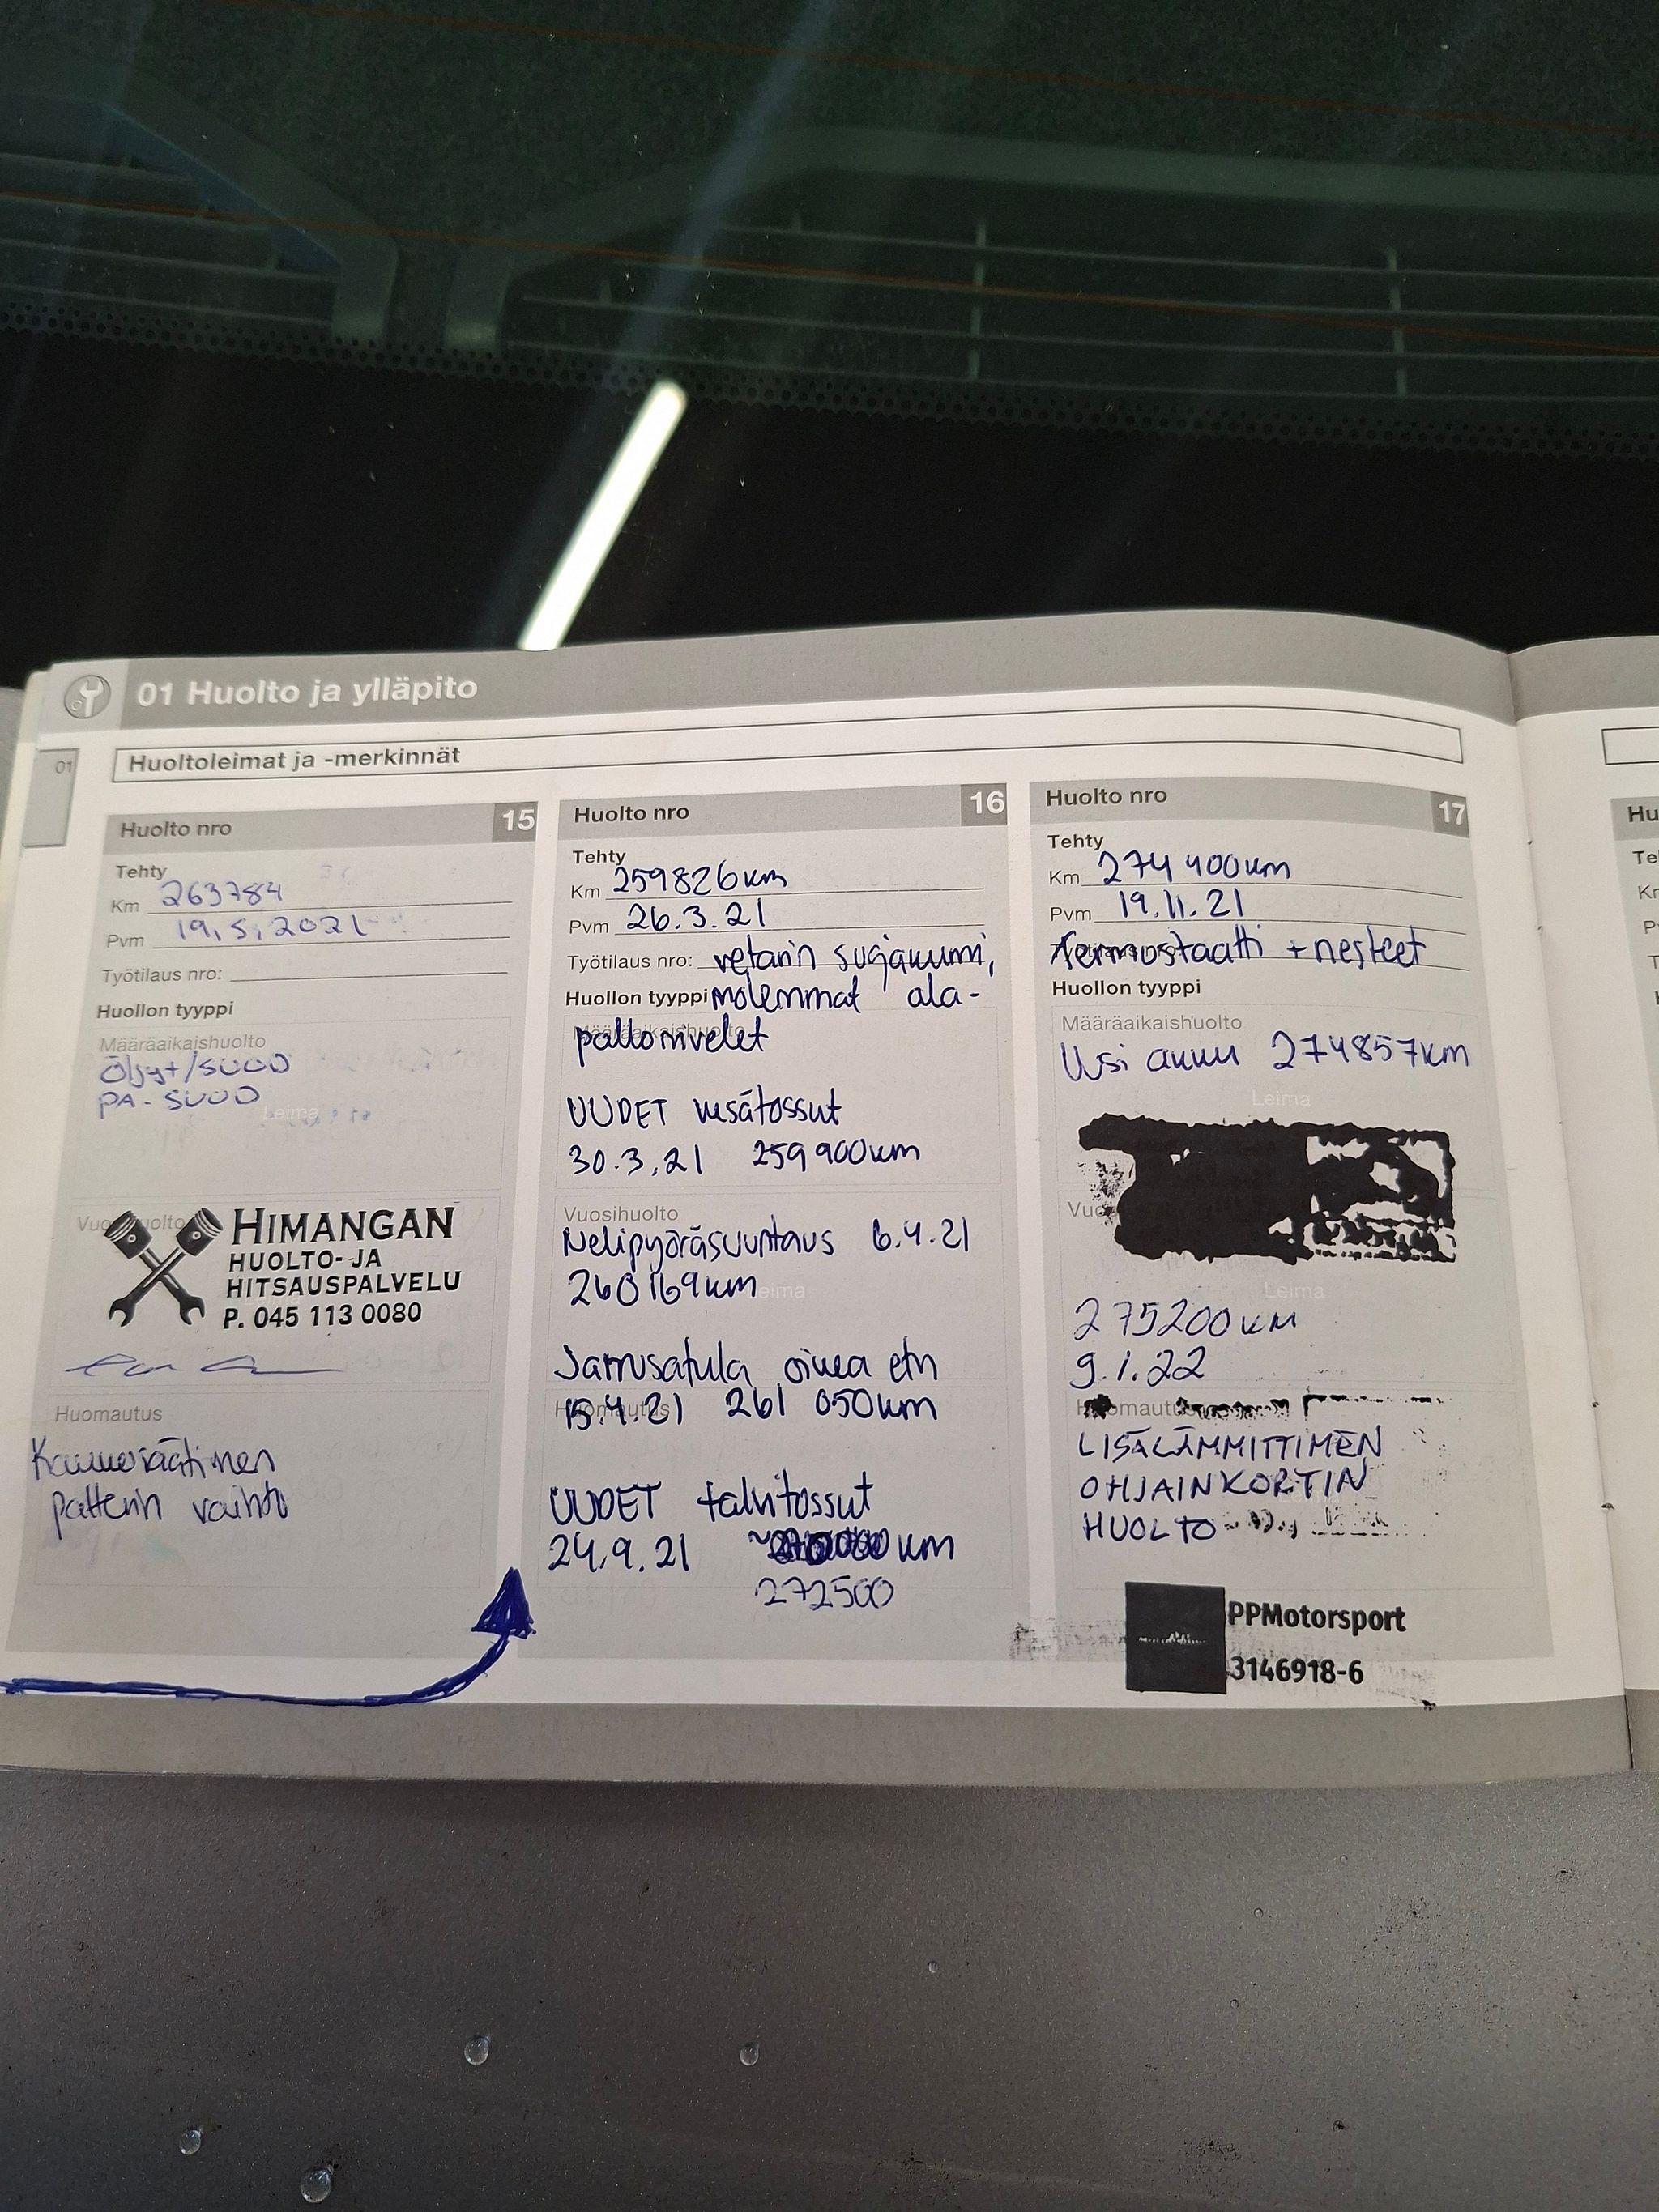 01 Huolto ja ylläpito
01
Huoltoleimat ja -merkinnät
Huolto nro 15
Tehty
Km 263784
Pvm 19.5.2021
Työtilaus nro:
Huollon tyyppi
Määräaikaishuolto
Öljyt/SUOD
PA-SUOD
Leima
HIMANGAN
HUOLTO- JA
HITSAUSPALVELU
P. 045 113 0080
Huomautus
Kaukosäätimen
patterin vaihto
Huolto nro 16
Tehty
Km 259826km
Pvm 26.3.21
Työtilaus nro: vetarin suojakumi,
Huollon tyyppi molemmat ala-
Määräaikaishuolto
pallonivelet
UUDET kesätossut
30.3.21 259900km
Vuosihuolto
Nelipyöräsuuntaus 6.4.21
260169km
Leima
Jarrusatula oikea etn
Huomautus
15.4.21 261 050km
UUDET talvitossut
24.9.21 km
272500
Huolto nro 17
Tehty
Km 274 400km
Pvm 19.11.21
Termostaatti + nesteet
Huollon tyyppi
Määräaikaishuolto
Uusi akku 274857km
Leima
Leima
275200km
9.1.22
Huomautus
LISÄLÄMMITTIMEN
OHJAINKORTIN
HUOLTO
PPMotorsport
3146918-6
Hu
Te